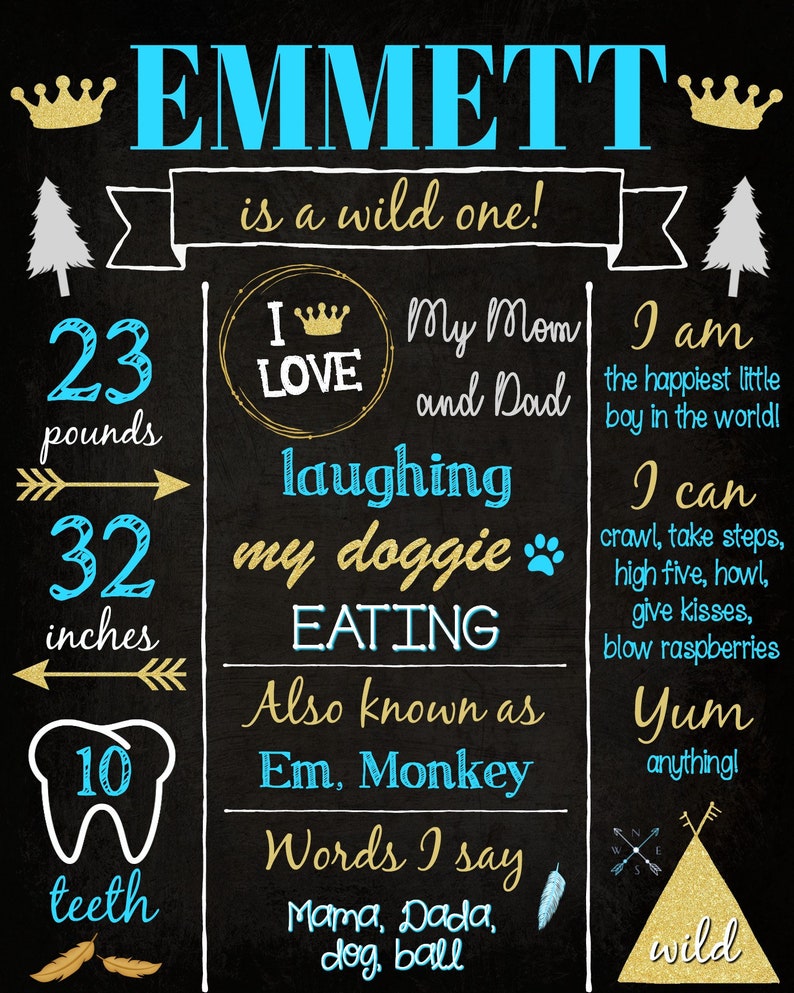 EMMETT
is a wild one!
23
pounds
32
inches
10
teeth
I
LOVE
My Mom
and Dad
laughing
my doggie
EATING
Also known as
Em, Monkey
Words I say
Mama, Dada,
dog, ball
I am
the happiest little
boy in the world!
I can
crawl, take steps,
high five, howl,
give kisses,
blow raspberries
Yum
anything!
N
W E
S
wild